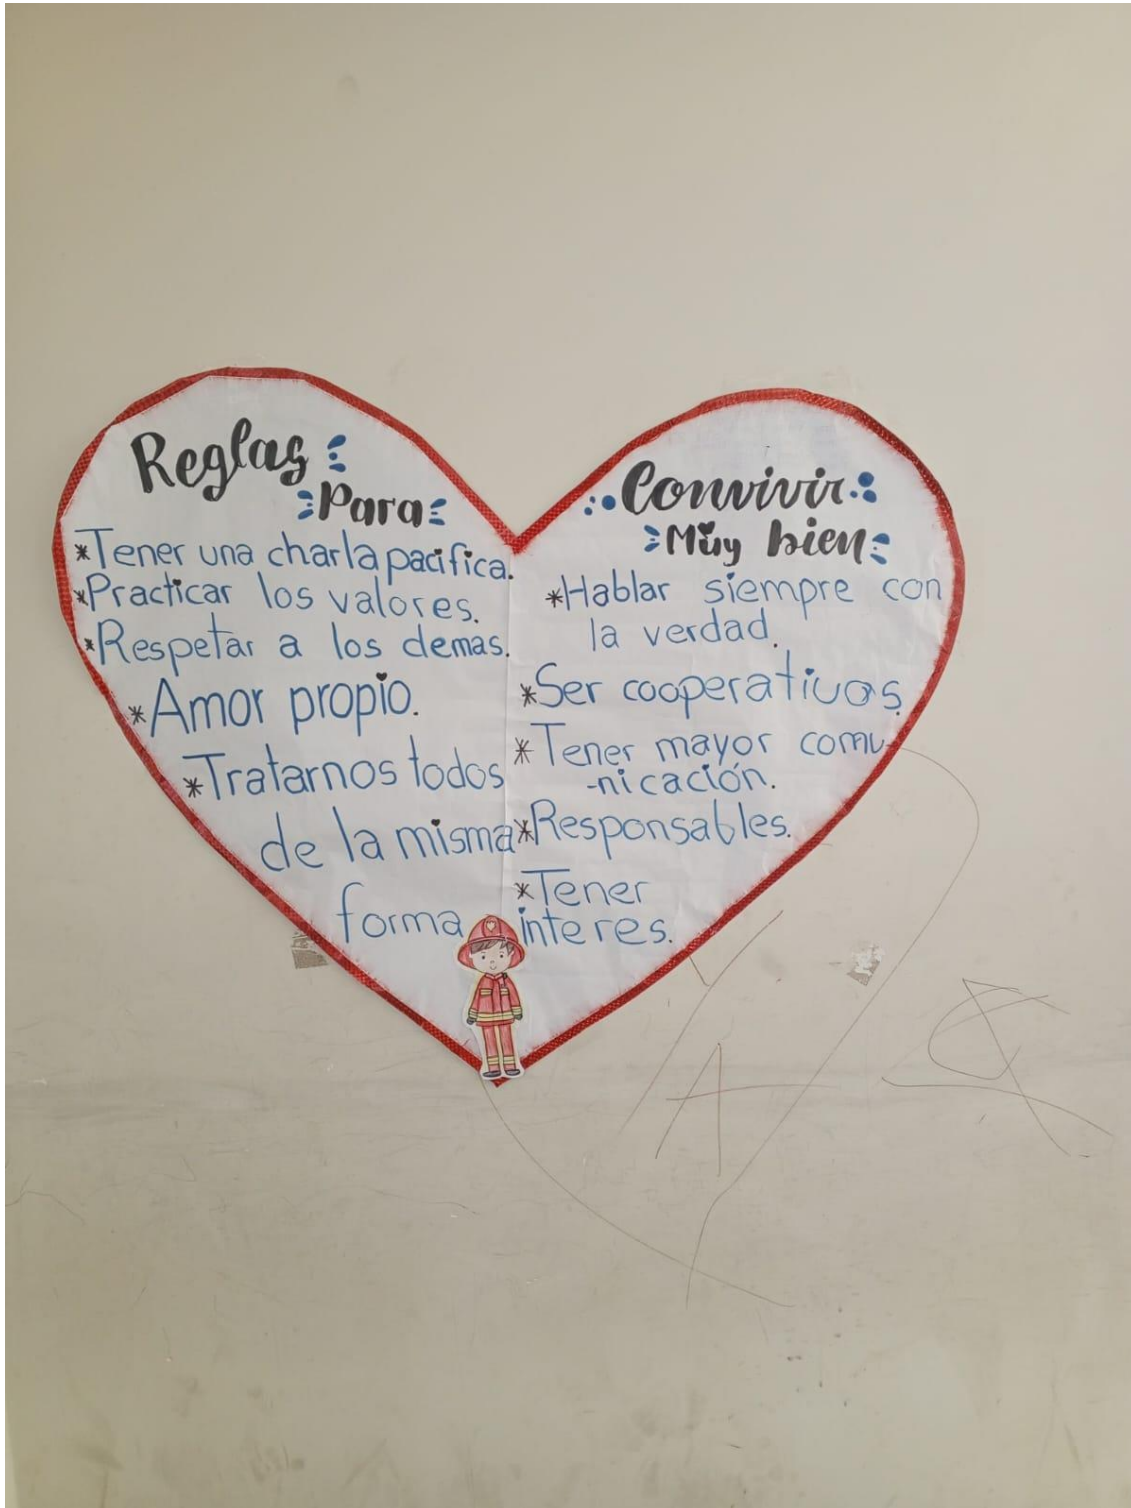 Reglas
Para
*Tener una charla pacifica.
*Practicar los valores.
*Respetar a los demas.
*Amor propio.
*Tratarnos todos
de la misma
forma
Convivir
Muy bien
*Hablar siempre con
la verdad.
*Ser cooperativos
*Tener mayor comu
-nicación.
*Responsables.
*Tener
interes.
A